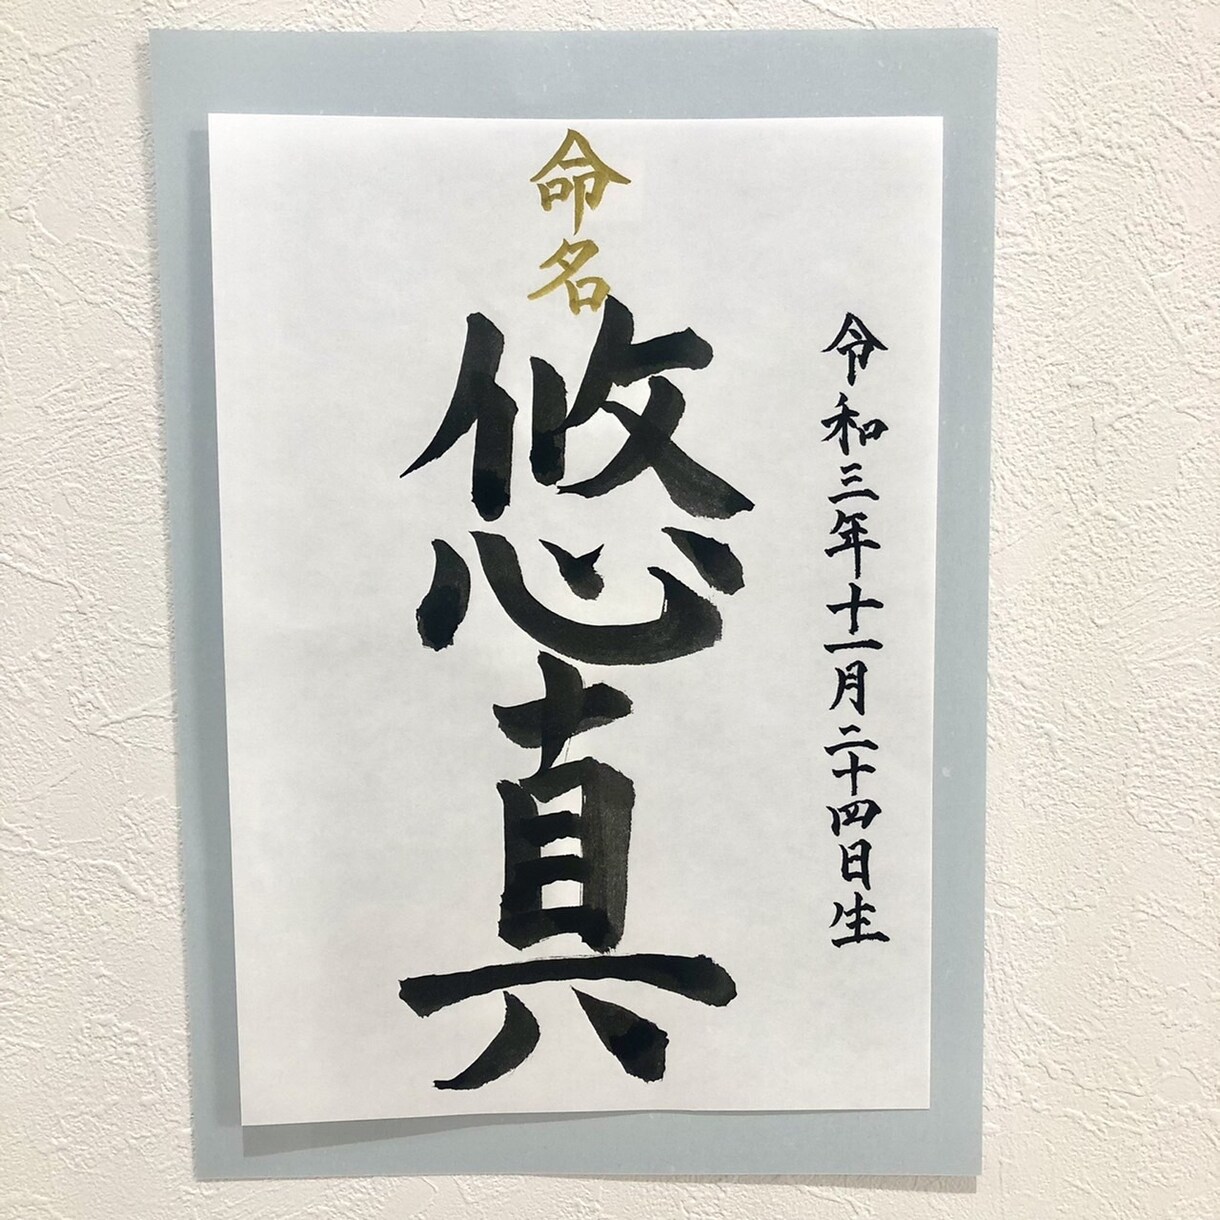 令和三年十一月二十四日生
命名
悠真